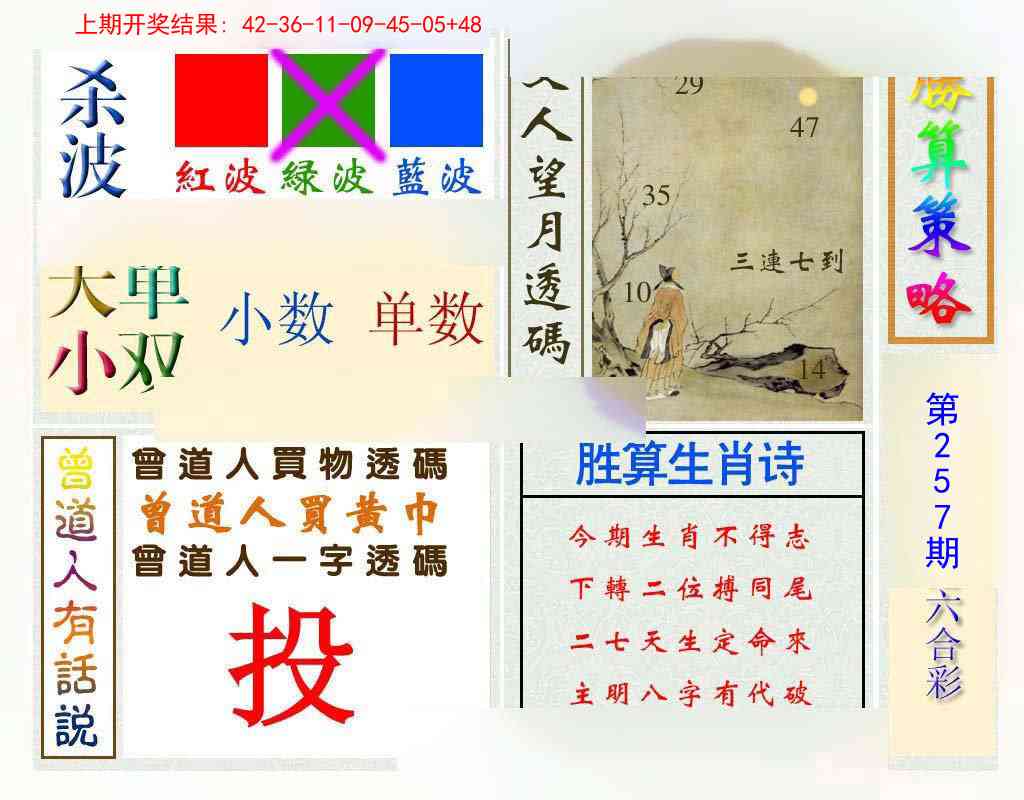 上期开奖结果: 42-36-11-09-45-05+48
杀波
紅波 緑波 藍波
大小
单双
小数 单数
人望月透碼
29
47
35
三連七到
10
14
勝算策略
第257期
六合彩
曾道人有話説
曾道人買物透碼
曾道人買黃巾
曾道人一字透碼
投
胜算生肖诗
今期生肖不得志
下轉二位搏同尾
二七天生定命來
主明八字有代破